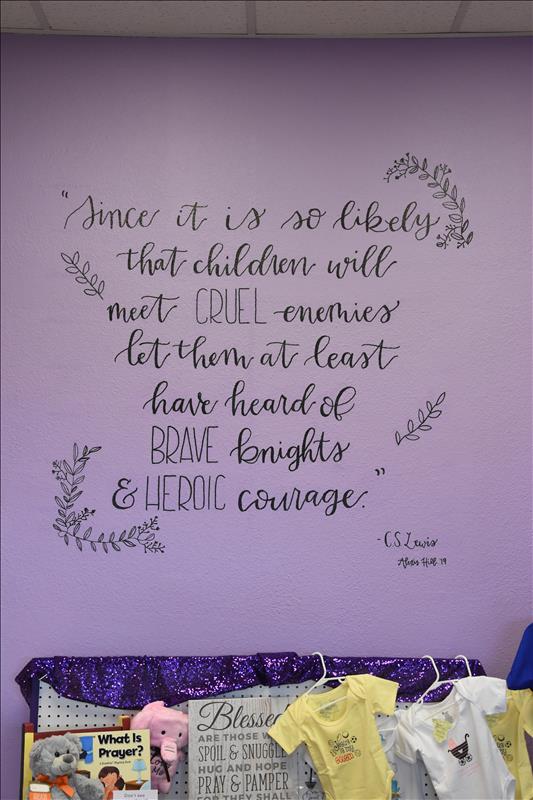 "Since it is so likely
that children will
meet CRUEL enemies
let them at least
have heard of
BRAVE knights
& HEROIC courage."
-C.S. Lewis
Alexis Hill '19
What Is
Prayer?
Blessed
ARE THOSE W
SPOIL & SNUGGL
HUG AND HOPE
PRAY & PAMPER
FOR THEY SHALL